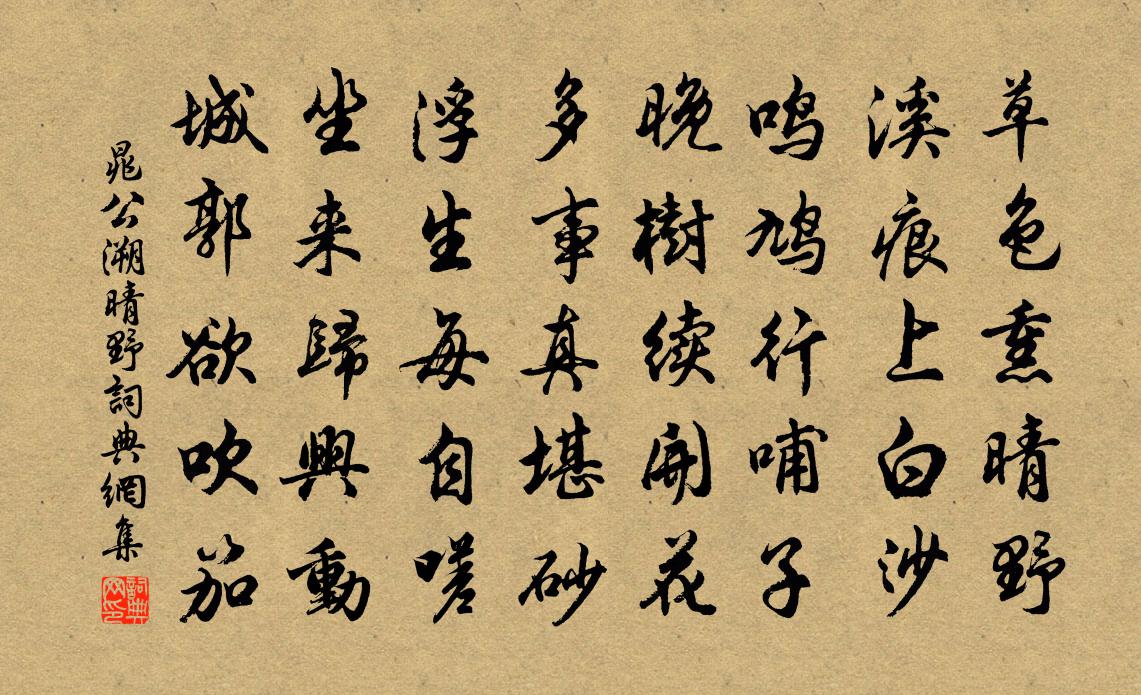 草色熏晴野
溪痕上白沙
鳴鳩行哺子
晚樹續開花
多事真堪砂
浮生每自嗟
坐来歸興動
城郭欲吹笳
晁公溯晴野詞典網集
詞典
网印